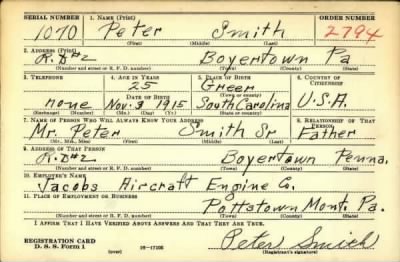 SERIAL NUMBER 1. NAME (Print) ORDER NUMBER
1070 Peter Smith 2794
(First) (Middle) (Last)
2. ADDRESS (Print)
R.D#2 Boyertown Pa
(Number and street or R. F. D. number) (Town) (County) (State)
3. TELEPHONE 4. AGE IN YEARS 5. PLACE OF BIRTH 6. COUNTRY OF CITIZENSHIP
25 Greer
DATE OF BIRTH (Town or county)
none Nov. 3 1915 South Carolina U.S.A.
(Exchange) (Number) (Mo.) (Day) (Yr.) (State or country)
7. NAME OF PERSON WHO WILL ALWAYS KNOW YOUR ADDRESS 8. RELATIONSHIP OF THAT PERSON
Mr. Peter Smith Sr Father
(Mr., Mrs., Miss) (First) (Middle) (Last)
9. ADDRESS OF THAT PERSON
R.D#2 Boyertown Penna.
(Number and street or R. F. D. number) (Town) (County) (State)
10. EMPLOYER'S NAME
Jacobs Aircraft Engine Co.
11. PLACE OF EMPLOYMENT OR BUSINESS
Pottstown Mont. Pa.
(Number and street or R. F. D. number) (Town) (County) (State)
I AFFIRM THAT I HAVE VERIFIED ABOVE ANSWERS AND THAT THEY ARE TRUE.
REGISTRATION CARD
D. S. S. Form 1 (over) 16-17105 Peter Smith
(Registrant's signature)